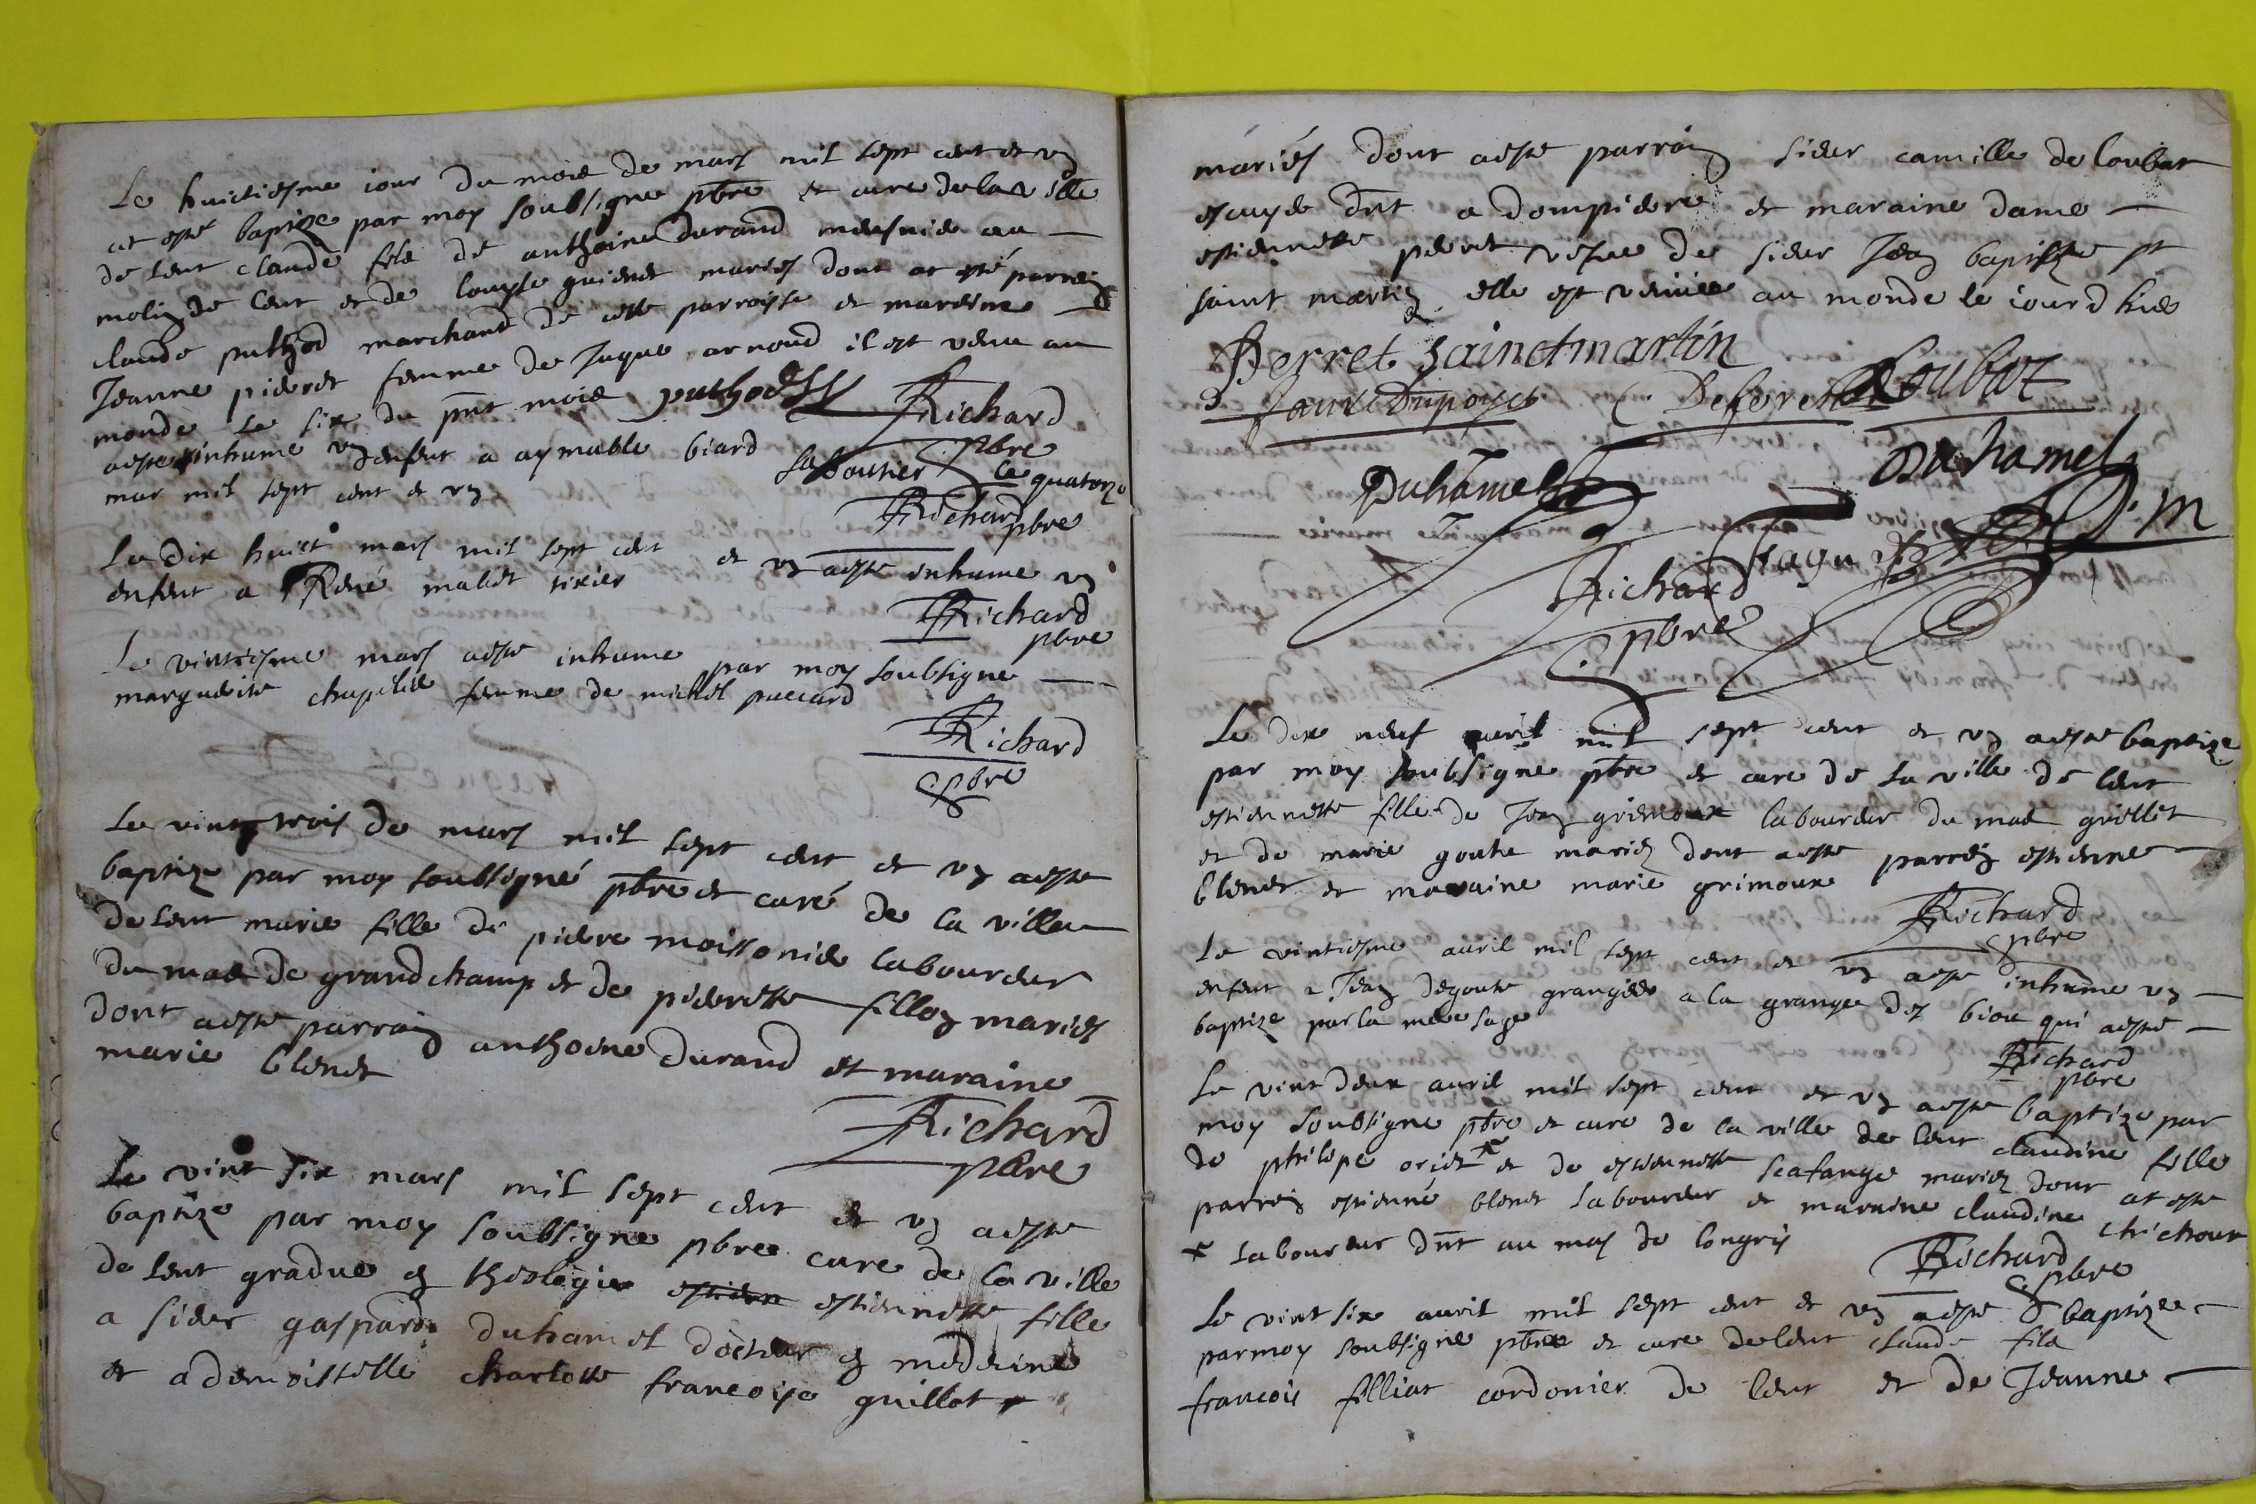 Le huictiesme iour du mois de mars mil sept cent et un
at esté baptize par moy soubsigne pbre et cure de la ville
de lent claude fils de anthoine durand meusnie au
molin de lent et de louyse guienet mariés dont at esté parrein
claude puthod marchand de cette parroisse et mareine
Jeanne pieret femme de Jaque arnoud il est venu au
monde le six du pnt mois puthod Richard
pbre
aeste inhumé un enfent a aymable biard laboutier le quatorze
mar mil sept cent et un Richard
pbre
Le dix huict mars mil sept cent et un aeste inhume un
enfent a René maliet tixier Richard
pbre
Le vintiesme mars aeste inhume par moy soubsigne
marguerite chapelie femme de michel puccard
Richard
c. pbre
Le vint trois de mars mil sept cent et un aeste
baptize par moy soubsigné pbre et curé de la ville
de lent marie fille de pierre moissonie laboureur
du mas de grandchamp et de pierrette fillon mariés
dont aeste parrain anthoine durand et maraine
marie blenet
Richard
pbre
Le vint six mars mil sept cent et un aeste
baptize par moy soubsigne pbre cure de la ville
de lent gradue en theologie estienette fille
a sieur gaspard duhamel docteur en medecine
et a demoisselle charlotte francoise guillot
mariés dont aeste parrain sieur camille de loubat
escuye dnt a dompierre et maraine dame
estiennette peret vefve de sieur Jean baptiste st
saint martin elle est venüe au monde le iourd huis
Perret sainctmartin
Loubat
Duhamel
Duhamel D. m
Richard
c. pbre
Le dix neuf auril mil sept cent et un aeste baptize
par moy soubsigne pbre et cure de la ville de lent
estiennette fille de Jean grimoux laboureur du mas griollet
et de marie goute mariez dont aeste parrein estienne
blenet et maraine marie grimoux
Richard
c pbre
Le vintiesme auril mil sept cent et un aeste inhume un
enfent a Jean degoute grangier a la grange des biou qui aesté
baptize par la mere sage
Richard
pbre
Le vint deux auril mil sept cent et un aeste baptize par
moy soubsigne pbre et cure de la ville de lent claudine fille
de philipe oriet et de estiennette scafange mariez dont at este
parrein estienne blenet laboureur et maraine claudine chichoux
laboureur dnt au mas de longris
Richard
c. pbre
Le vint six auril mil sept cent et un aeste baptize
par moy soubsigne pbre et cure de lent claude fils
francois filliat cordonier de lent et de Jeanne